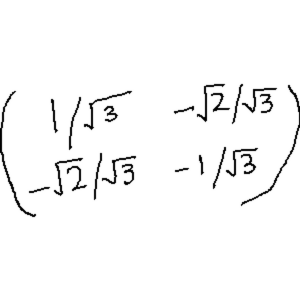 1/√3 -√2/√3
-√2/√3 -1/√3